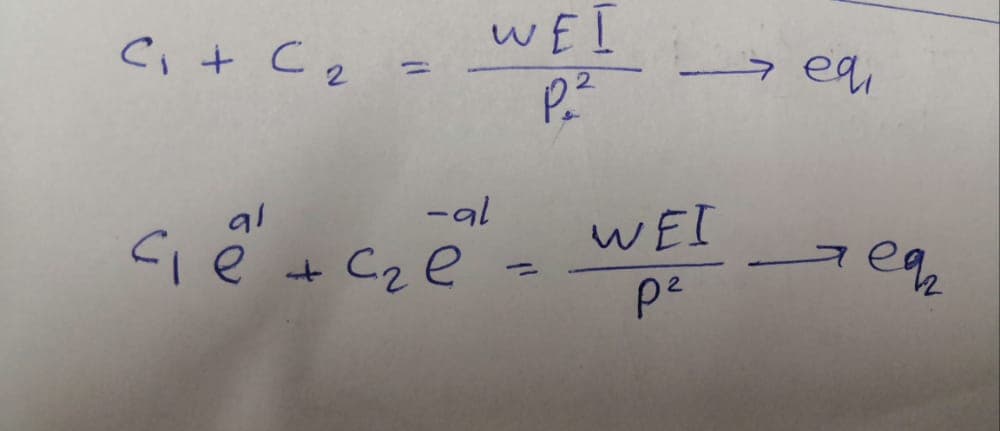 C₁ + C₂ = WEI / P² → eq₁
C₁ e^{al} + C₂ e^{-al} = WEI / P² → eq₂